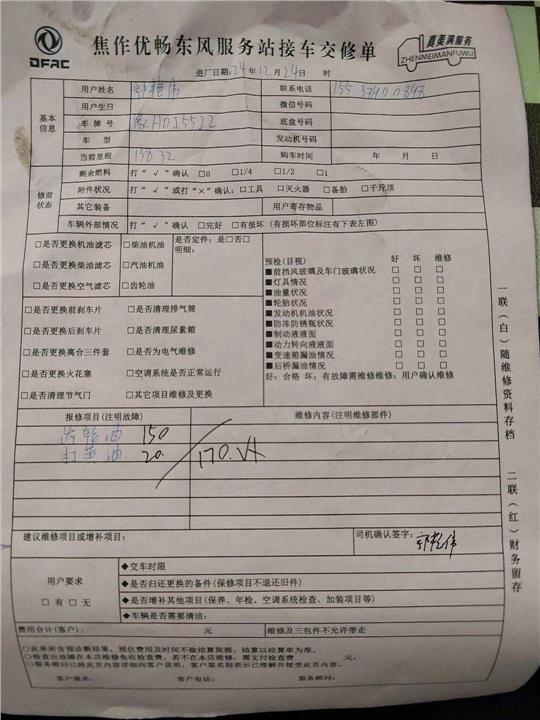 DFAC
焦作优畅东风服务站接车交修单
真美满服务
ZHENMEIMANFUWU
进厂日期:24年12月24日 时
基本信息
用户姓名 郭艳伟 联系电话
用户生日 微信号码
车牌号 豫HDJ5522 底盘号码
车型 发动机号码
当前里程 15832 购车时间 年 月 日
修前状态
剩余燃料 打“√”确认 □0 □1/4 □1/2 □1
附件状况 打“√”或打“×”确认:□工具 □灭火器 □备胎 □千斤顶
其它装备 用户寄存物品
车辆外部情况 打“√”确认 □完好 □有损坏(有损坏部位标注有下表左图)
□是否更换机油滤芯 □柴油机油 是否定件:是□否□
明细:
□是否更换柴油滤芯 □汽油机油
□是否更换空气滤芯 □齿轮油
□是否更换前刹车片 □是否清理排气筒
□是否更换后刹车片 □是否清理尿素箱
□是否更换离合三件套 □是否为电气维修
□是否更换火花塞 □空调系统是否正常运行
□是否清理节气门 □其它项目维修及更换
预检(目视) 好 坏 维修
■前挡风玻璃及车门玻璃状况 □ □ □
■灯具情况 □ □ □
■油量状况 □ □ □
■轮胎状况 □ □ □
■发动机机油状况 □ □ □
■防冻防锈瓶状况 □ □ □
■制动液液面 □ □ □
■动力转向液液面 □ □ □
■变速箱漏油情况 □ □ □
■后桥漏油情况 □ □ □
好:合格 坏:有故障需维修维修:用户确认维修
报修项目(注明故障) 维修内容(注明维修部件)
齿轮油 150
打黄油 20. 170.
建议维修项目或增补项目: 司机确认签字: 郭艳伟
用户要求
□有□无
◆交车时限
◆是否归还更换的备件(保修项目不退还旧件)
◆是否增补其他项目(保养、年检、空调系统检查、加装项目等)
◆车辆是否需要清洁:
费用合计(客户): 元 维修及三包件不允许带走
○此单所含预诊断结果,预估费用及时间不做结算依据,结算以结算单为准。
○检查出故障在本店维修免收检查费,若不在本店维修,需支付检查费 元。
○服务顾问已将此页内容详细向客户说明,客户签名则表示已理解并接受此页内容。
客户签名: 客户电话: 服务顾问:
一联(白)随维修资料存档
二联(红)财务留存